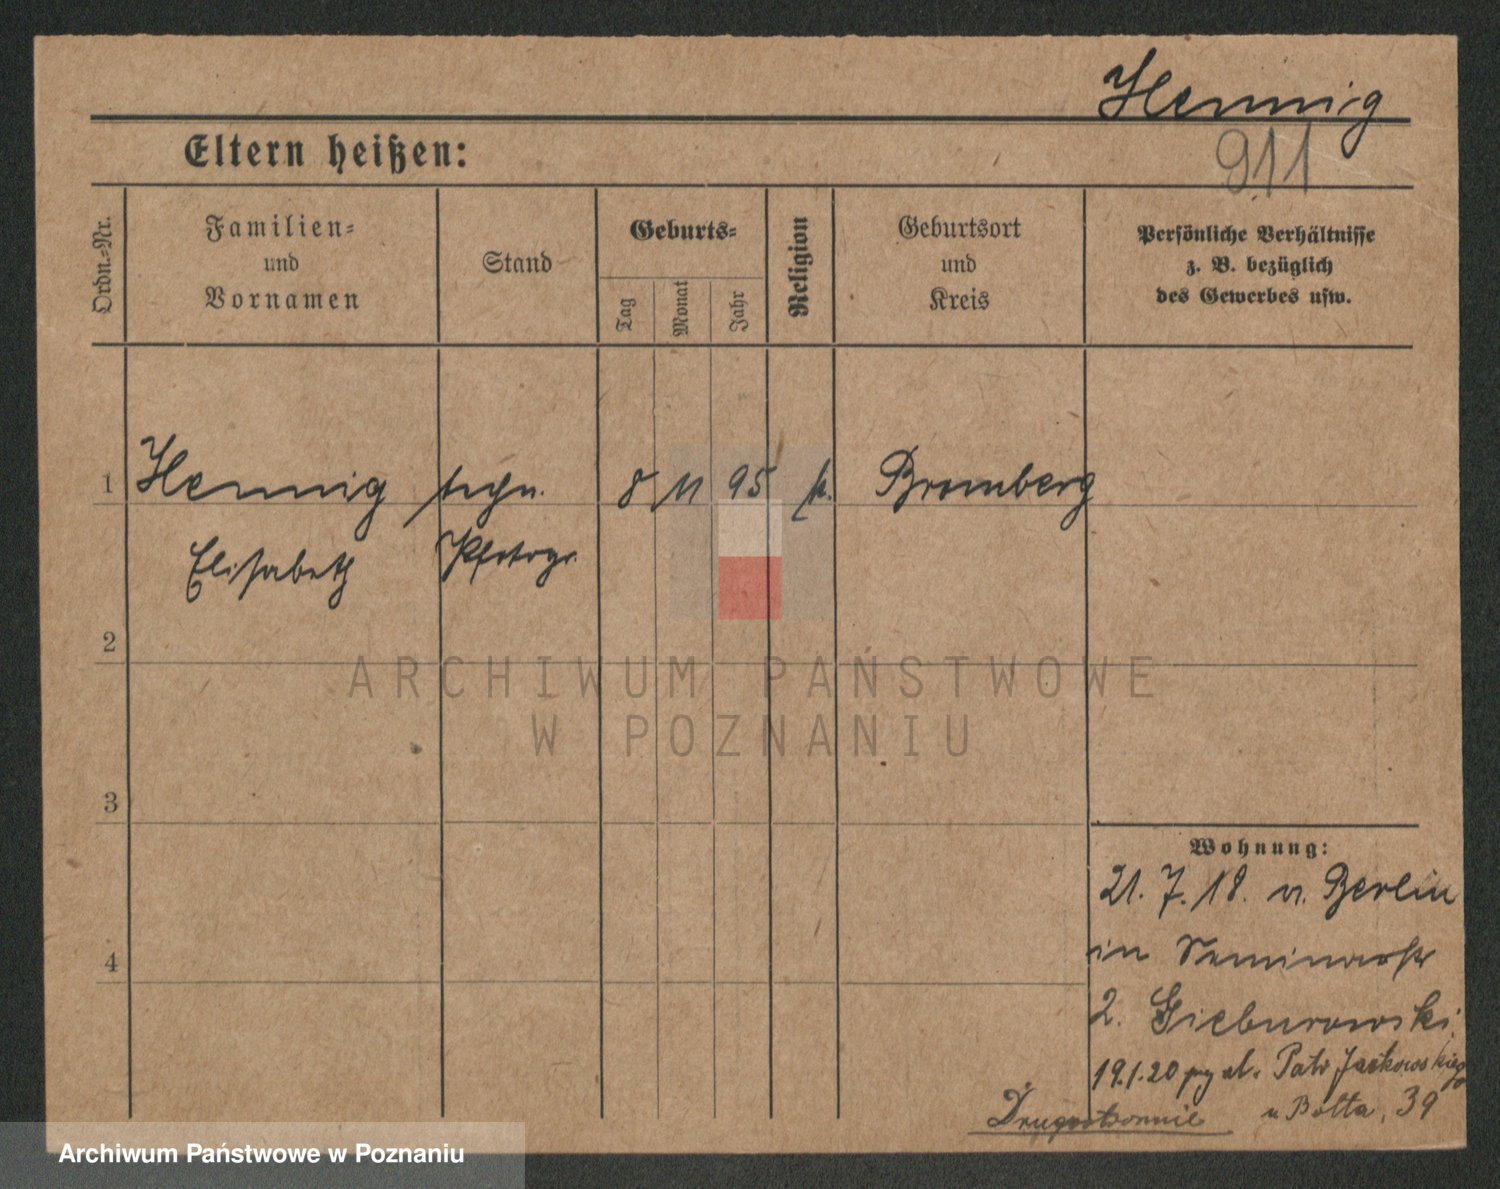 Hennig
911
Eltern heißen:
Ordn.-Nr.
Familien-
und
Vornamen
Stand
Geburts-
Tag
Monat
Jahr
Religion
Geburtsort
und
Kreis
Persönliche Verhältnisse
z. B. bezüglich
des Gewerbes usw.
1 Hennig techn. 8 11 95 k. Bromberg
Elisabeth Photogr.
2
ARCHIWUM PAŃSTWOWE
W POZNANIU
3
Wohnung:
21. 7. 18. v. Berlin
in Seminarstr
4
2. Gieburowski
19.1.20 Patr Jackowskiego
u Bolta, 39
Drugostronnie
Archiwum Państwowe w Poznaniu